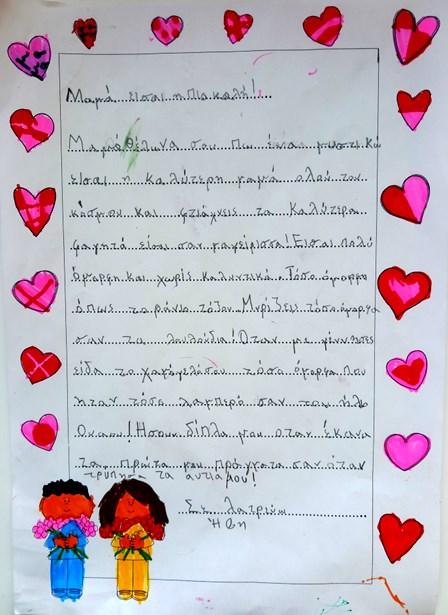 Μαμά είσαι η πιο καλή!
Μαμά θέλω να σου πω ένα μυστικό
είσαι η καλύτερη μαμά όλου του
κόσμου και φτιάχνεις τα καλύτερα
φαγητά είσαι σαν μαγείρισσα! Είσαι πολύ
όμορφη και χωρίς καλυντικά. Τόσο όμορφη
όπως το ράνιο τόξον. Μυρίζεις τόσο όμορφα
σαν τα λουλούδια! Όταν με γέννησες
είδα το χαμόγελό σου τόσο όμορφο που
ήταν τόσο λαμπερό σαν τον ήλιο
Ουαου! Ήσουν δίπλα μου όταν έκανα
τα πρώτα μου πράγματα σαν όταν
τρύπησα τα αυτιά μου!
Σε λατρεύω
Ήβη